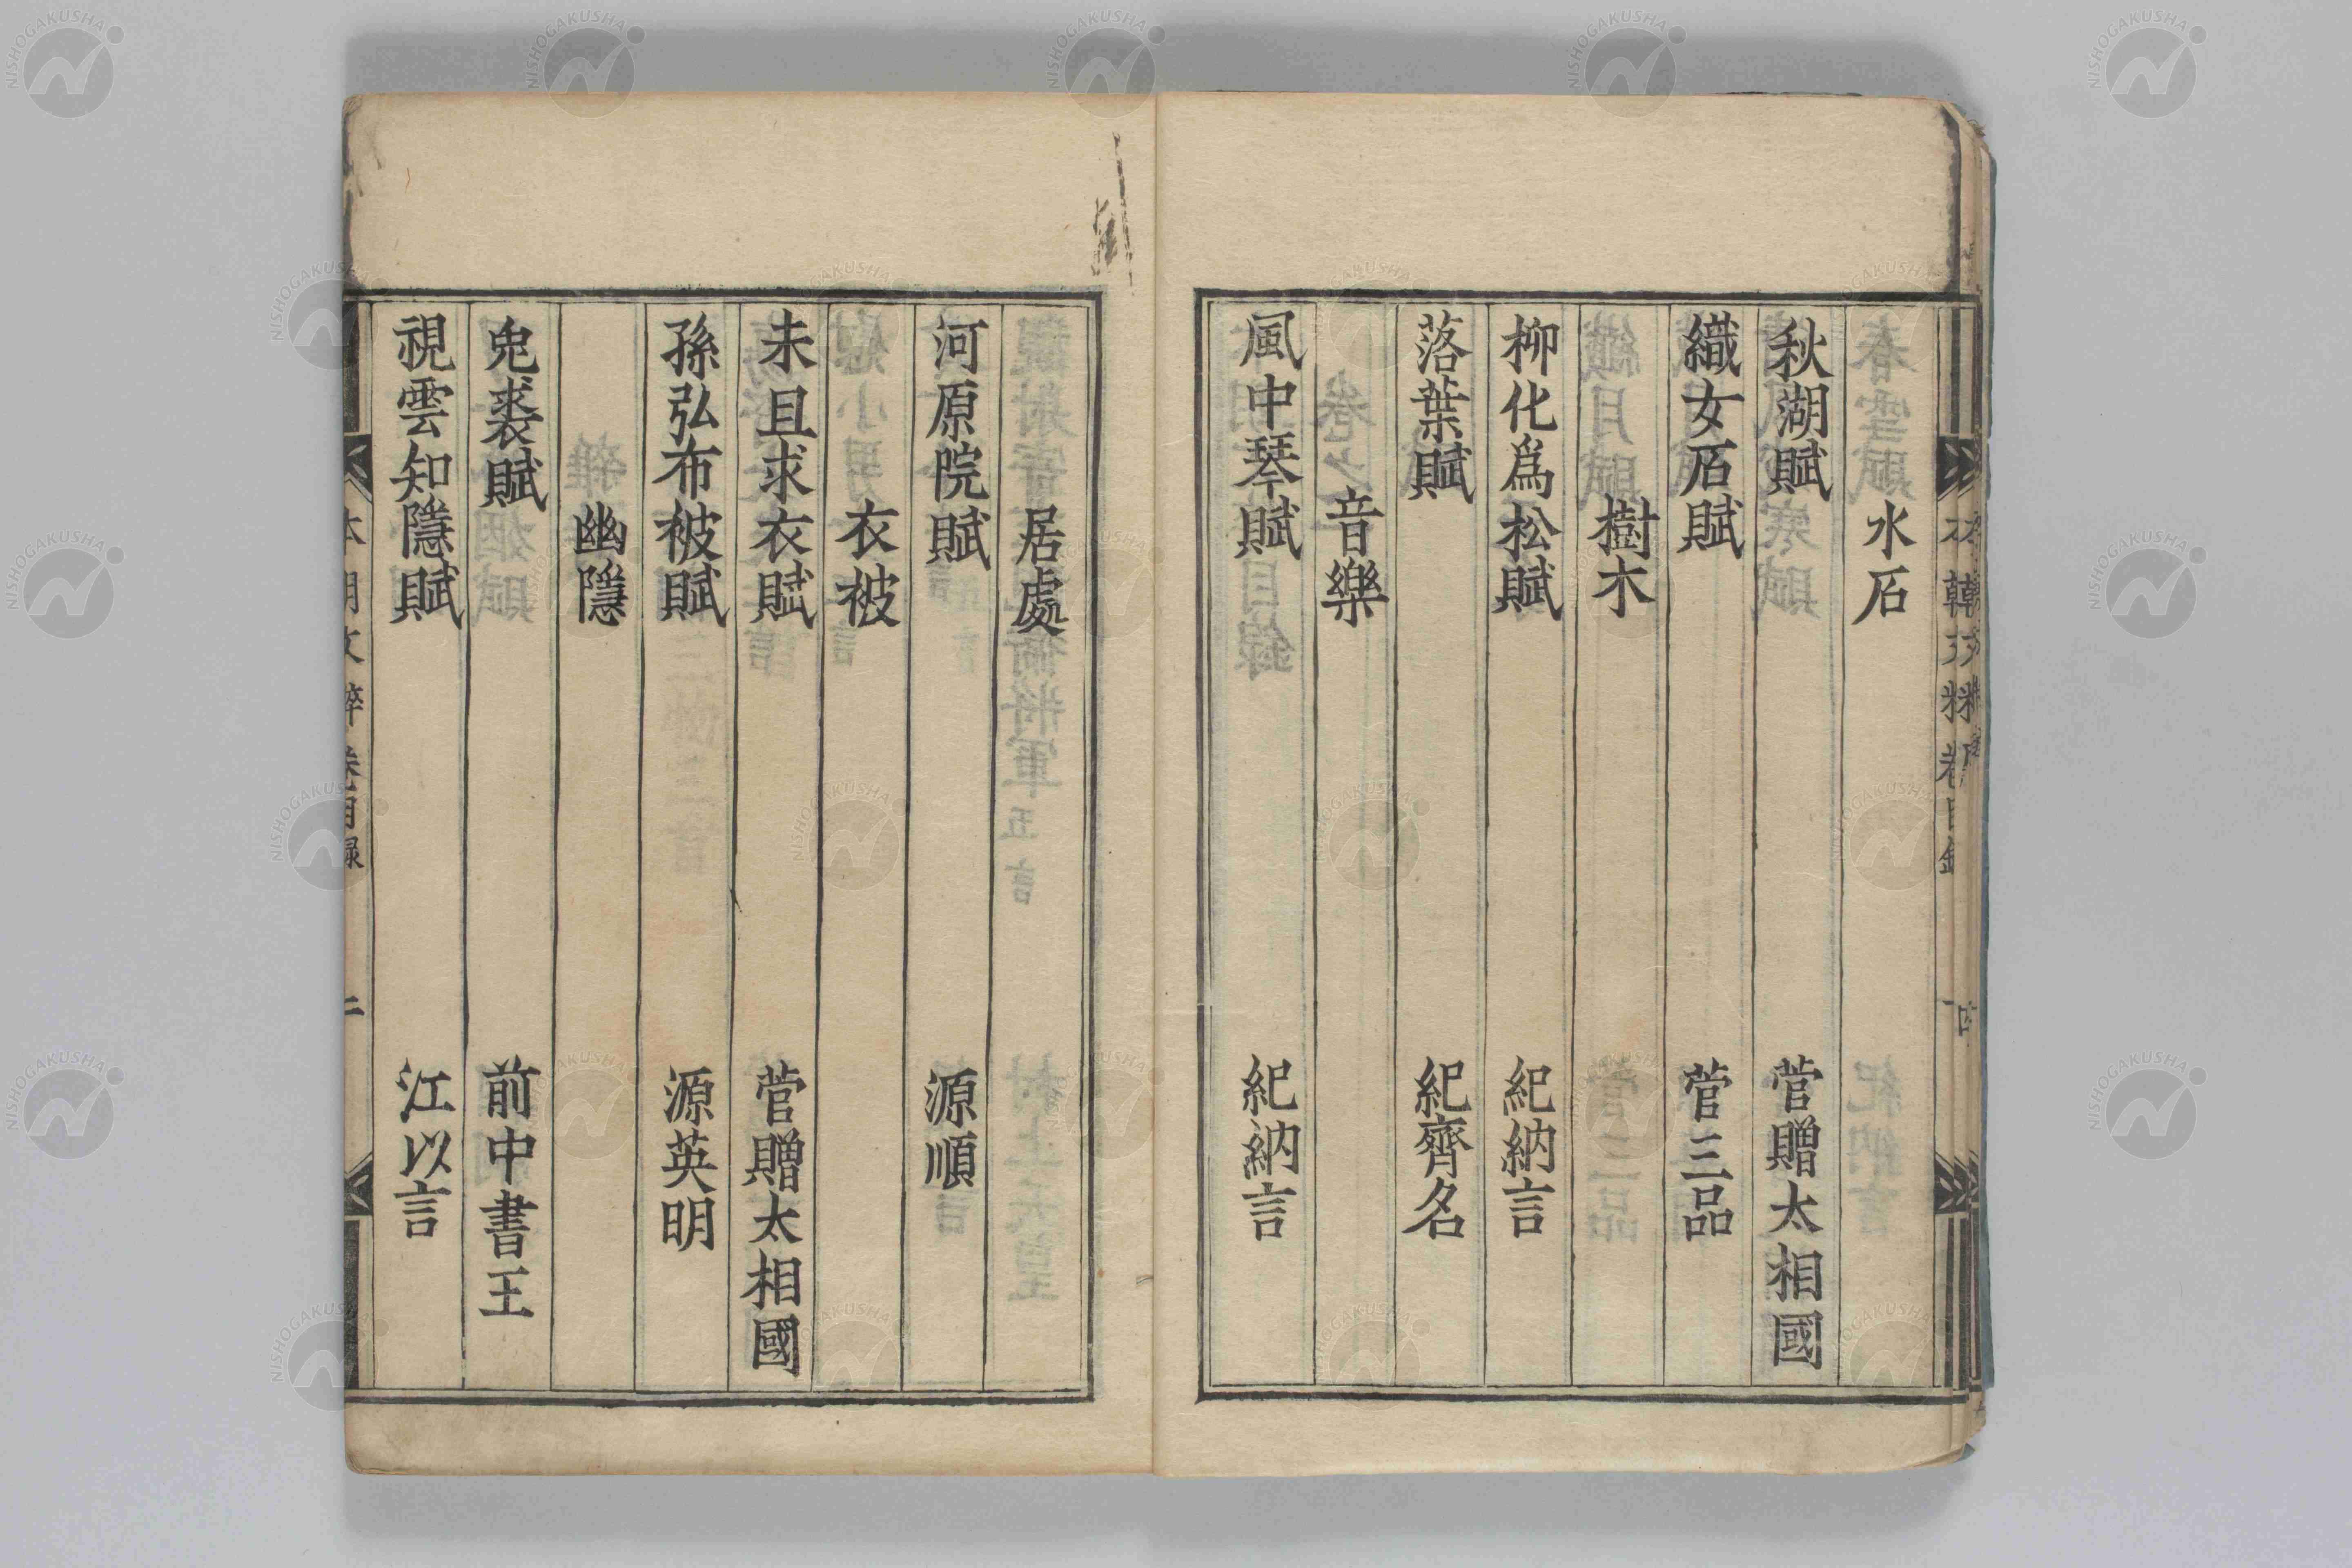 水石
秋湖賦 菅贈太相國
織女石賦 菅三品
樹木
柳化爲松賦 紀納言
落葉賦 紀齊名
音樂
風中琴賦 紀納言
居處
河原院賦 源順
衣被
未且求衣賦 菅贈太相國
孫弘布被賦 源英明
幽隱
兔裘賦 前中書王
視雲知隱賦 江以言
NISHOGAKUSHA